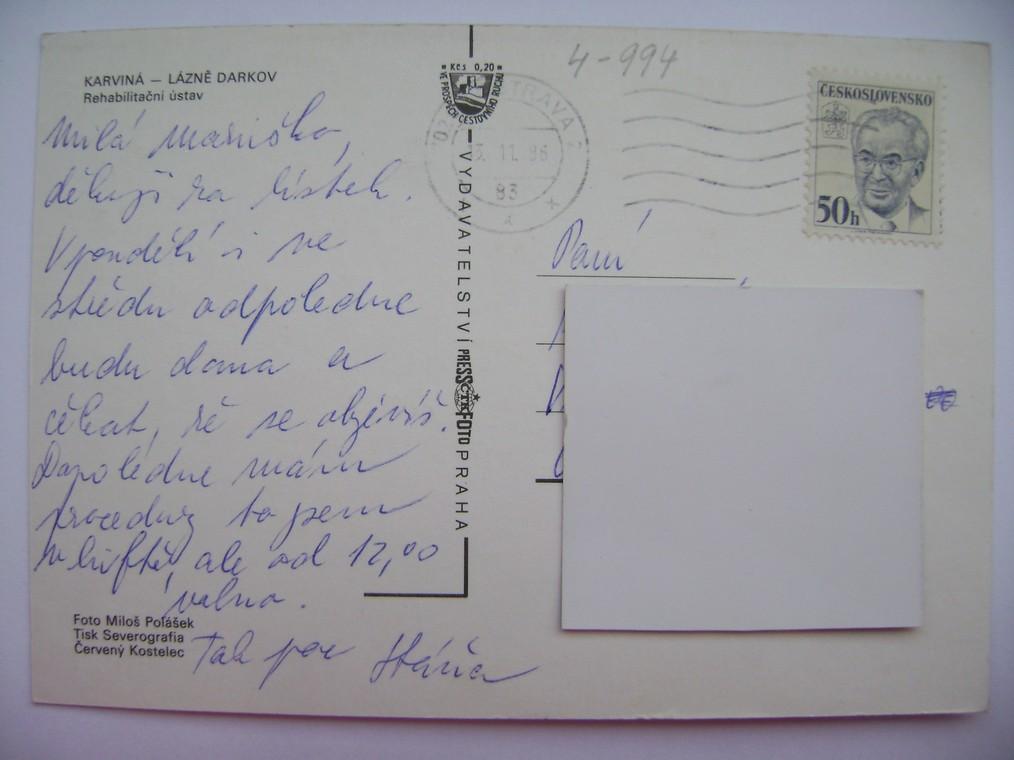 KARVINÁ — LÁZNĚ DARKOV
Rehabilitační ústav
Milá
děkuji za lístek.
V pondělí i ve
středu odpoledne
budu doma a
čekat, že se objevíš.
Dopoledne mám
procedury to jsem
v luftě, ale od 12,00
volno.
Tak pa
Foto Miloš Polášek
Tisk Severografia
Červený Kostelec
Kčs 0,20
VE PROSPĚCH CESTOVNÍHO RUCHU
VYDAVATELSTVÍ PRESSFOTO PRAHA
ČTK
OSTRAVA 2
11. 86
83
a
4-994
ČESKOSLOVENSKO
50h
Paní